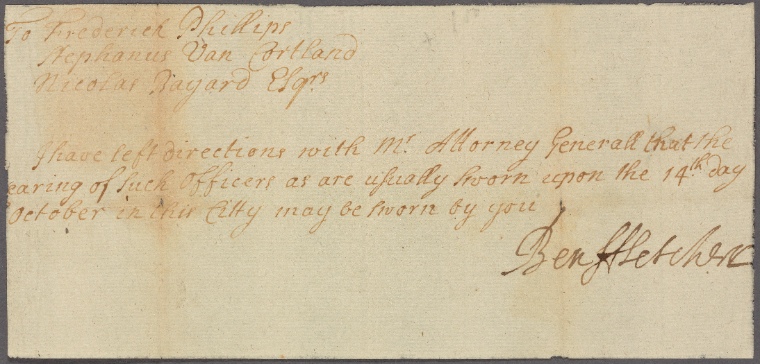 To Frederick Phillips
Stephanus Van Cortland
Nicolas Bayard Esqrs
I have left directions with Mr. Attorney Generall that the
earing of such Officers as are usually sworn upon the 14th day
October in this Citty may be sworn by you
Ben ffletcher